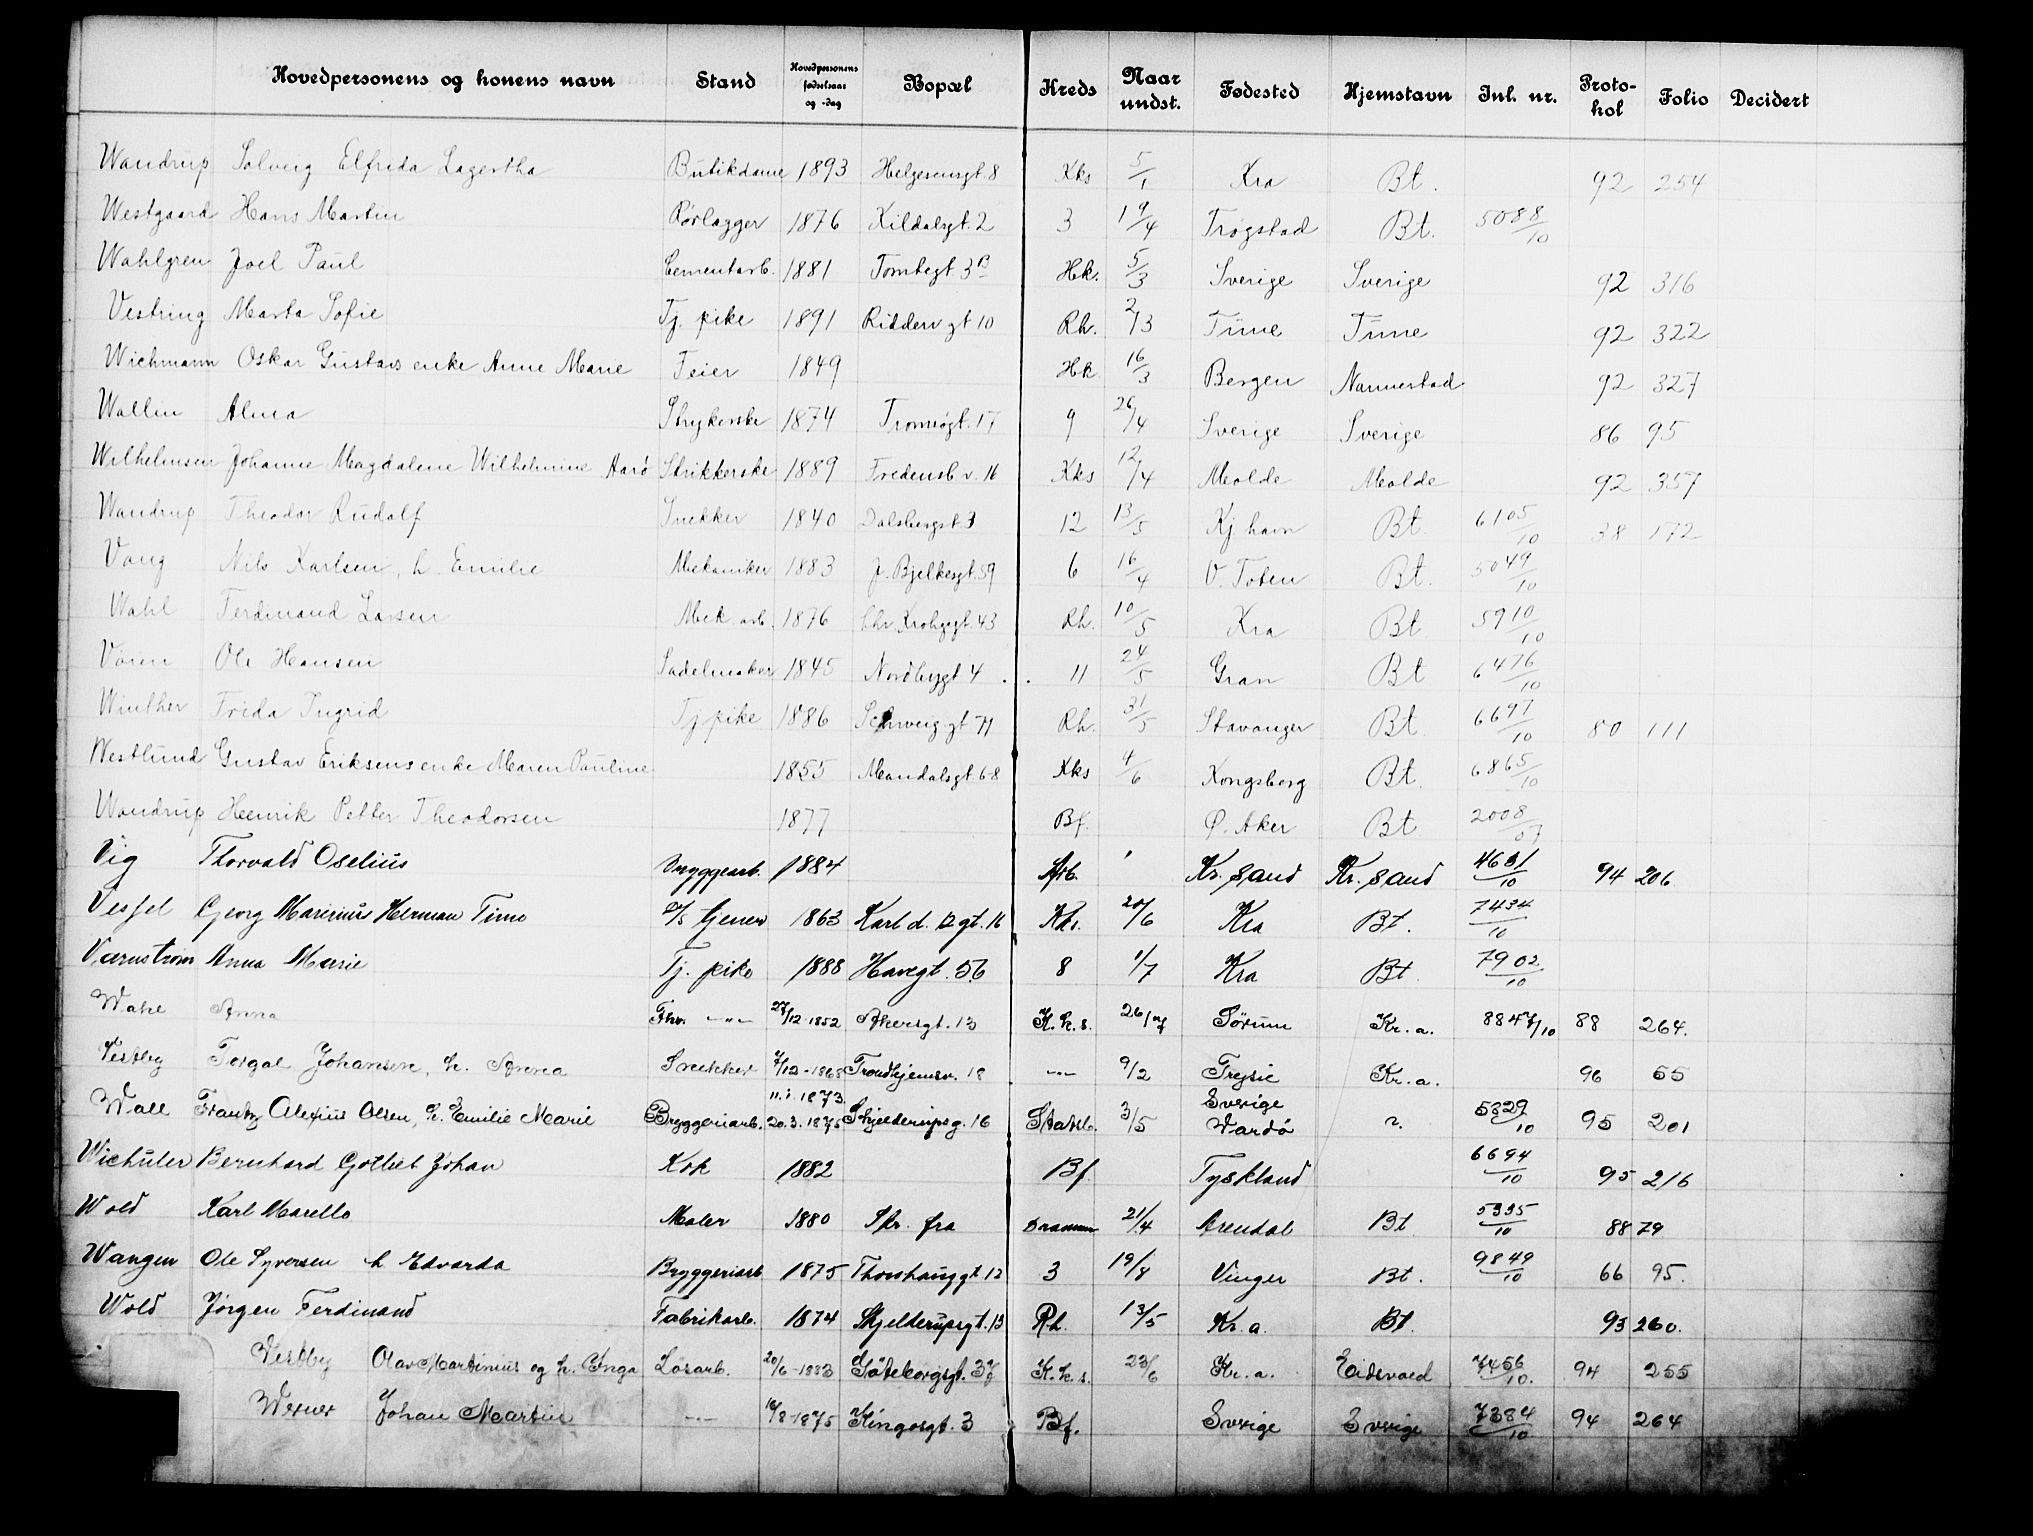 Hovedpersonens og konens navn Stand Hovedpersonens fødselsaar og -dag Bopæl Kreds Naar undst. Fødested Hjemstavn Inl. nr. Protokol Folio Decidert
Wandrup Solveig Elfrida Lagertha Butikdame 1893 Helgesensgt. 8 Kks 5/1 Kra Bt. 92 254
Westgaard Hans Martin Rørlægger 1876 Kildalsgt. 2 3 19/4 Trøgstad Bt. 5088/10
Wahlgren Joel Paul Cementarb. 1881 Tomtegt 3 B Hk. 5/3 Sverige Sverige 92 316
Vestring Marta Sofie Tj. pike 1891 Ridderv gt 10 Rh. 2/3 Time Time 92 322
Wichmann Oskar Gustavs enke Anne Marie Feier 1849 Hk 16/3 Bergen Nannestad 92 327
Wallin Alma Strykerske 1874 Tromsøgt. 17 9 26/4 Sverige Sverige 86 95
Wilhelmsen Johanne Magdalene Wilhelmine Aarø Strikkerske 1889 Fredensb. v. 16 Kks 12/4 Molde Molde 92 357
Wandrup Theodor Rudolf Snekker 1840 Dalsbergst 3 12 13/5 Kj. havn Bt. 6105/10 38 172
Vang Nils Karlsen, h. Emilie Mekaniker 1883 J. Bjelkesgt. 59 6 16/4 V. Toten Bt. 5049/10
Wahl Ferdinand Larsen Mek. arb. 1876 Chr. Krohgsgt. 43 Rh. 10/5 Kra Bt 5910/10
Voren Ole Hansen Sadelmaker 1845 Nordbygt 4 11 24/5 Gran Bt 6476/10
Winther Frida Ingrid Tj pike 1886 Schweig gt 11 Rh. 31/5 Stavanger Bt 6697/10 80 111
Westlund Gustav Eriksens enke Maren Pauline 1855 Mandalsgt 6-8 Kks 4/6 Kongsberg Bt. 6865/10
Wandrup Henrik Petter Theodorsen 1877 Bf. Ø. Aker Bt 2008/07
Vig Thorvald Oselius Bryggearb. 1884 Arb. Kr. sand Kr. sand 4631/10 94 206
Vessel Georg Marinius Herman Timo tjener 1863 Karl d. 12 gt. 16 Kks. 20/6 Kra Bt. 7434/10
Varnstrøm Anna Marie Tj. pike 1888 Havegt. 56 8 1/7 Kra Bt. 7902/10
Wahl Anna Fhv. -"- 27/12-1852 Akersgt. 13 K. k. s. 26/7 Sørum Kr. a. 8847/10 88 264.
Vestby Torgal Johansen, h. Anna Snekker 7/12-1868 Trondhjemsv. 18 -"- 9/2 Trysil Kr. a. 96 55
Wall Frantz Alexius Olsen, h. Emilie Marie Bryggeriarb. 11.1.1873 20.3.1875 Skjelderupsg. 16 Statsb. 3/5 Sverige Vardø 5829/10 95 201
Wichuler Bernhard Gotlieb Johan Kok 1882 Bf. Tyskland 6694/10 95 216
Wold Karl Marello Maler 1880 Skr. fra Drammen 21/4 Arendal Bt 5335/10 88 79
Wangen Ole Syversen h Edvarda Bryggeriarb 1875 Thorshauggt 12 3 19/8 Vinger Bt. 9849/10 66 95.
Wold Jørgen Ferdinand Fabrikarb. 1874 Skjelderupsgt. 13 Rh. 13/5 Kr. a. Bt. 93 260.
Vestby Olav Martinius og h. Inga Løsarb. 20/6-1883 Gøteborggt. 3 K. k. s. 23/6 Kr. a. Eidsvold 7456/10. 94 255
Werner Johan Martin -"- 16/8-1875 Kingosgt. 3 Bf. Sverige Sverige 7384/10 94 264